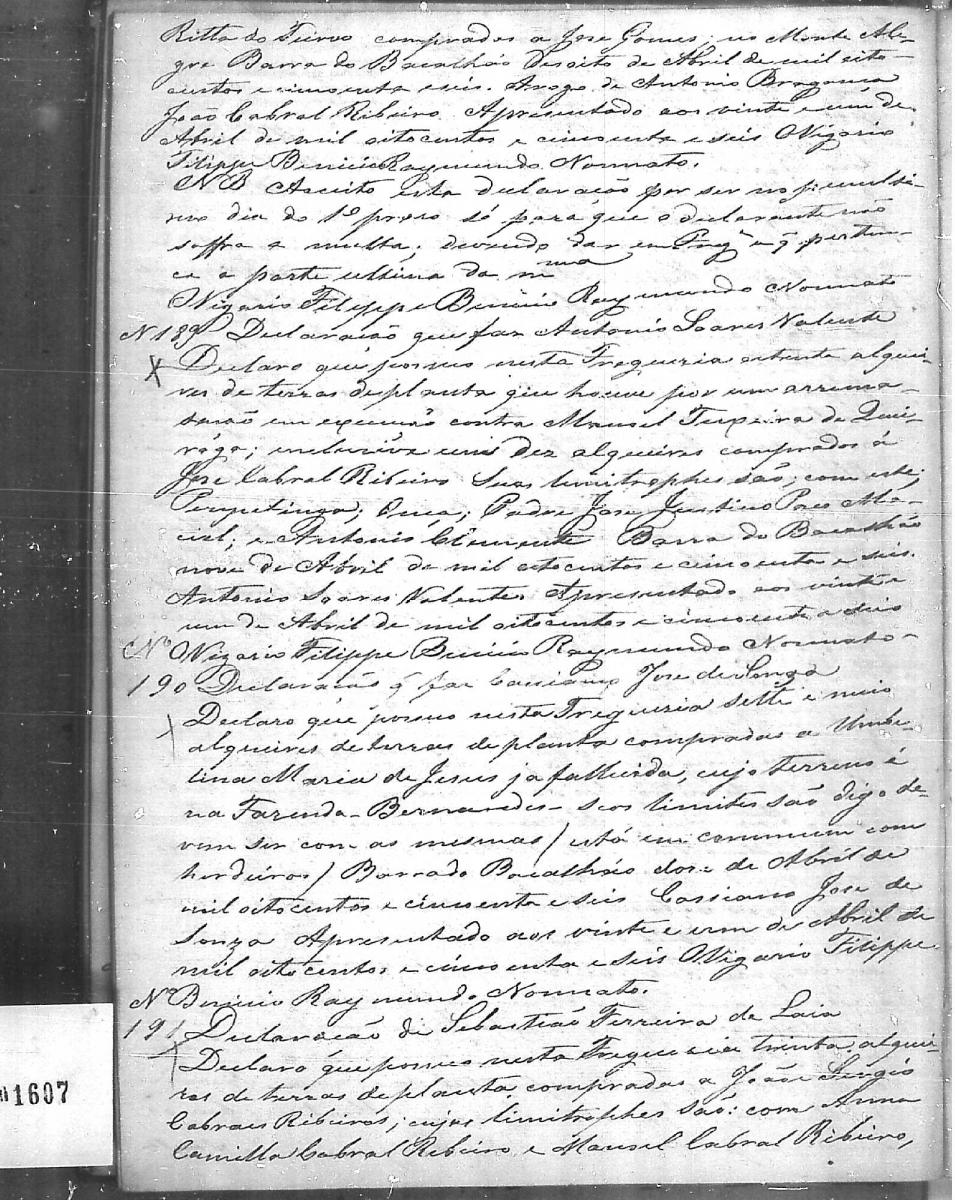 Ritta do Turvo comprades a Jose Gomes; no Monte Ale-
gre Barra do Bacalháo desoito de Abril de mil oito-
centos e cincoenta e seis. Arogo de Antonio Bragança
João Cabral Ribeiro. Apresentado aos vinte e um de
Abril de mil oitocentos e cincoenta e seis O Vigario
Filippe Benicio Raymundo Nonnato.
NB Acceito esta declaração por ser no penulti-
mo dia do 1º praso só para que o declarante não
soffra a multa; devendo dar em Fregª e q̃ perten-
ce a parte ultima da mma
Vigario Filippe Benicio Raymundo Nonnato
N 189 Declaração que faz Antonio Soares Valente
X Declaro que possuo nesta Freguezia oitenta alquei-
res de terras de planta que houve por um arrema-
tação em execução contra Manoel Teixeira de Quei-
róga; inclusive uns dez alqueires comprados á
Jose Cabral Ribeiro Suas limitrophes são; com este;
Pirapetinga; Padre Jose Justino Paes Ma-
ciel; e Antonio Clemente Barra do Bacalháo
nove de Abril de mil oitocentos e cincoenta e seis.
Antonio Soares Valente. Apresentado aos vinte e
um de Abril de mil oitocentos e cincoenta e seis
Nº O Vigario Filippe Benicio Raymundo Nonnato-
190 Declaração q̃ faz Cassiano Jose de Souza
Declaro que possuo nesta Freguezia sette e meio
alqueires de terras de planta compradas a Umbe-
lina Maria de Jesus ja fallecida, cujo terreno é
na Fazenda - Bernardes - seos limites são digo de-
vem ser com as mesmas / está em commum com
herdeiros / Barra do Bacalháo dose de Abril de
mil oitocentos e cincoenta e seis Cassiano Jose de
Souza Apresentado aos vinte e um de Abril de
mil oitocentos e cincoenta e seis O Vigario Filippe
Nº Benicio Raymundo Nonnato.
191 Declaração de Sebastião Ferreira de Laia
Declaro que possuo nesta Freguesia trinta alquei-
res de terras de planta, compradas a João Sergio
Cabraes Ribeiros; cujas limitrophes são: com Anna
Camilla Cabral Ribeiro e Manoel Cabral Ribeiro,
1607